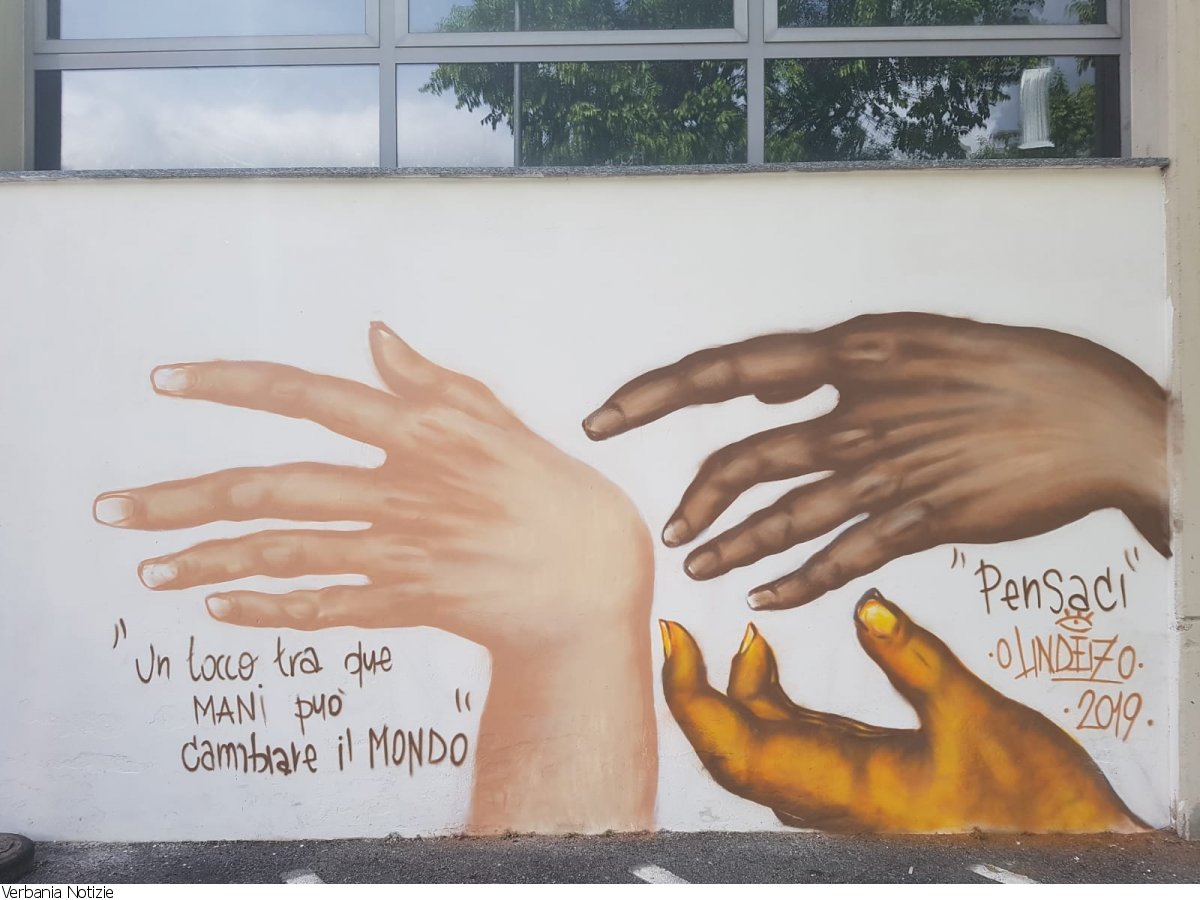 "Un tocco tra due
MANi può
cambiare il MONDO"
"PenSaci"
·O LINDEIZO·
·2019·
Verbania Notizie